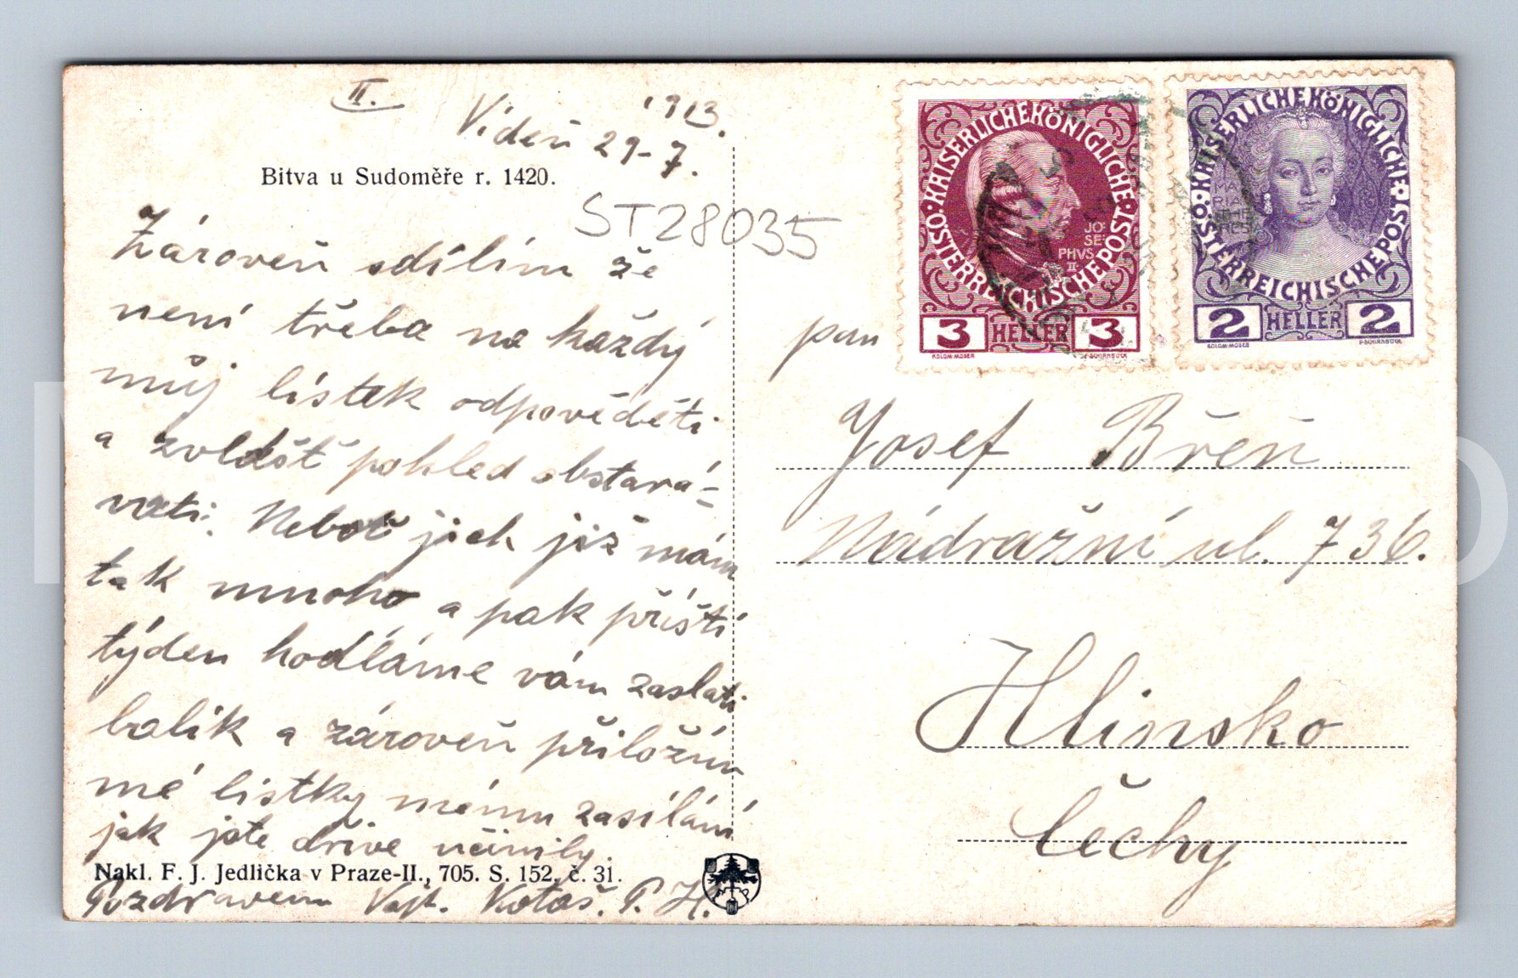 II.
1913.
Vídeň 29-7.
Bitva u Sudoměře r. 1420.
ST28035
Zároveň sdílím že
není třeba na každý
můj lístek odpověděti
a zvlášť pohled obstará-
vati. Neboť jich již mám
tak mnoho a pak příští
týden hodláme vám zaslati
balík a zároveň přiložím
mé lístky mému zasílání
jak jste dříve učinily.
Nakl. F. J. Jedlička v Praze-II., 705. S. 152, č. 31.
Pozdravem Vojt. Kotas. P. H.
KAISERLICHE KÖNIGLICHE
ÖSTERREICHISCHE POST
JO
SE
PHVS
II
3 HELLER 3
KOLOM. MOSER F. SCHIRNBÖCK
KAISERLICHE KÖNIGLICHE
ÖSTERREICHISCHE POST
MA
RIA
THE
RESI
2 HELLER 2
KOLOM. MOSER F. SCHIRNBÖCK
pan
Josef Břeň
Nádražní ul. 736.
Hlinsko
Čechy